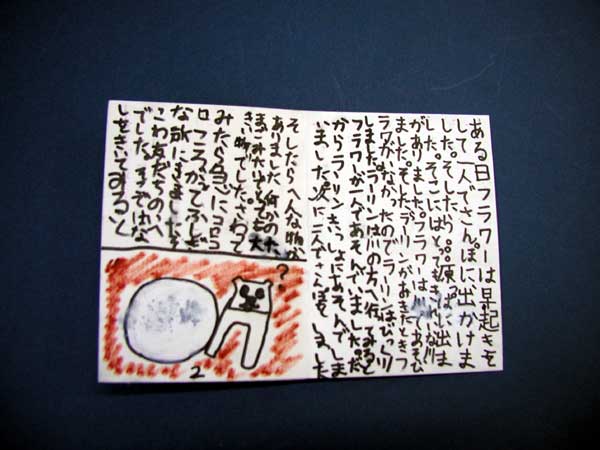 ある日フラワーは早起きを
して一人でさんぽに出かけま
した。そしたら。。。原っぱに出ま
した。そこにはとてもきれいな川
がありました。フラワーは川であそび
ました。そしたらラーリンがおきたときフ
ラワーがいなかったのでラーリンはびっくり
しました。ラーリンは川の方へ行ってみると
フラワーが一人であそんでました。だ
からラーリンもいっしょにあそんでしま
いました。次に二人でさんぽをしました
そしたらへんな物が
ありました。何かのた
まごみたいでとても大
きい物でした。さわって
みたら急にコロコ
ロ、ころがってふしぎ
な所にきました。そ
こわ友だちのへや
でした。まずはな
しをきいてみると
?
2